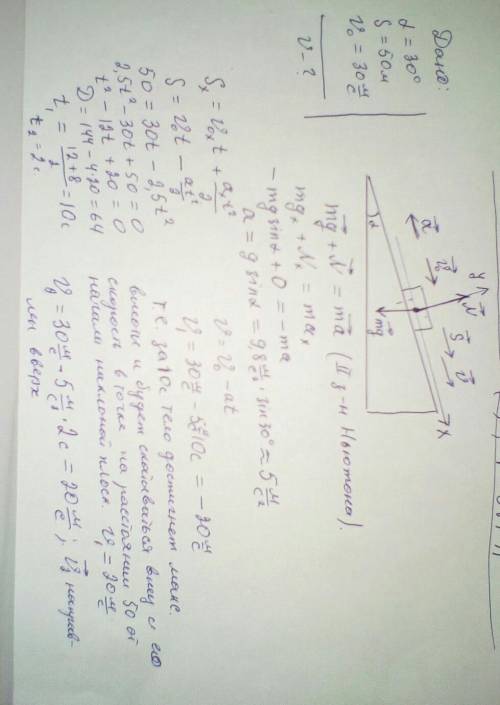 Дано:
α = 30°
S = 50м
v₀ = 30 м/с
v - ?
y
N⃗
v⃗₀
S⃗
v⃗
a⃗
x
α
mg⃗
mg⃗ + N⃗ = ma⃗ (II з-н Ньютона).
mgₓ + Nₓ = maₓ
- mg sinα + 0 = - ma
a = g sinα = 9,8 м/с² · sin30° ≈ 5 м/с²
Sₓ = v₀ₓt + aₓt²/2
S = v₀t - at²/2
50 = 30t - 2,5t²
2,5t² - 30t + 50 = 0
t² - 12t + 20 = 0
D = 144 - 4·20 = 64
t₁ = (12+8)/2 = 10с
t₂ = 2с.
v = v₀ - at
v₁ = 30 м/с - 5 м/с² · 10с = - 20 м/с
т.е. за 10с тело достигнет макс.
высоты и будет скатываться вниз и его
скорость в точке на расстоянии 50 от
начала наклонной плоск. v₁ = 20 м/с
v₂ = 30 м/с - 5 м/с² · 2с = 20 м/с ; v⃗₂ направ-
лен вверх